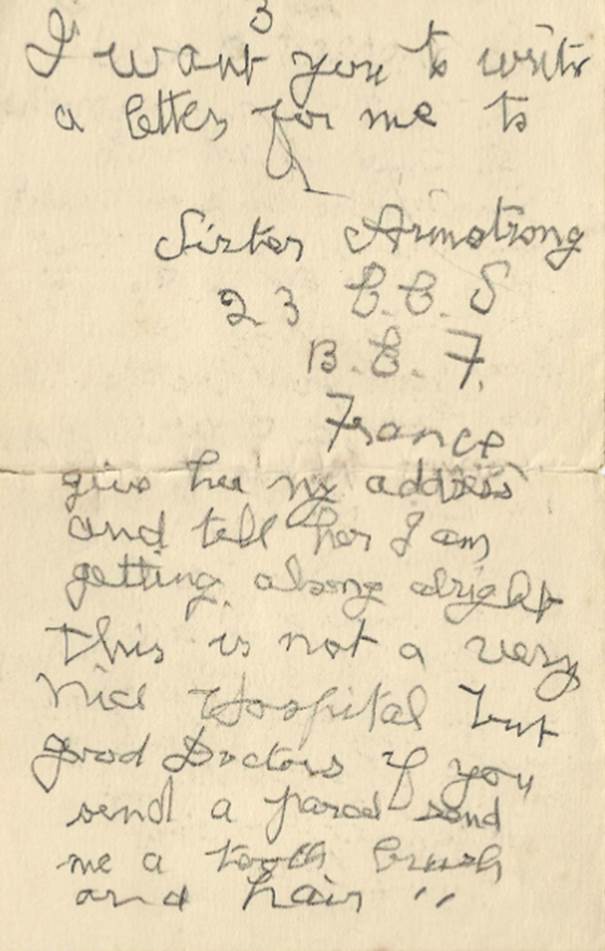 3
I want you to write
a letter for me to
Sister Armstrong
23 C.C.S
B.E.F.
France
give her my address
and tell her I am
getting along alright
this is not a very
nice Hospital but
good Doctors if you
send a parcel send
me a tooth brush
and hair "